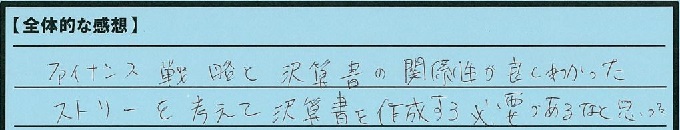 【全体的な感想】
ファイナンス戦略と決算書の関係性が良くわかった
ストリーを考えて決算書を作成する必要があるなと思った